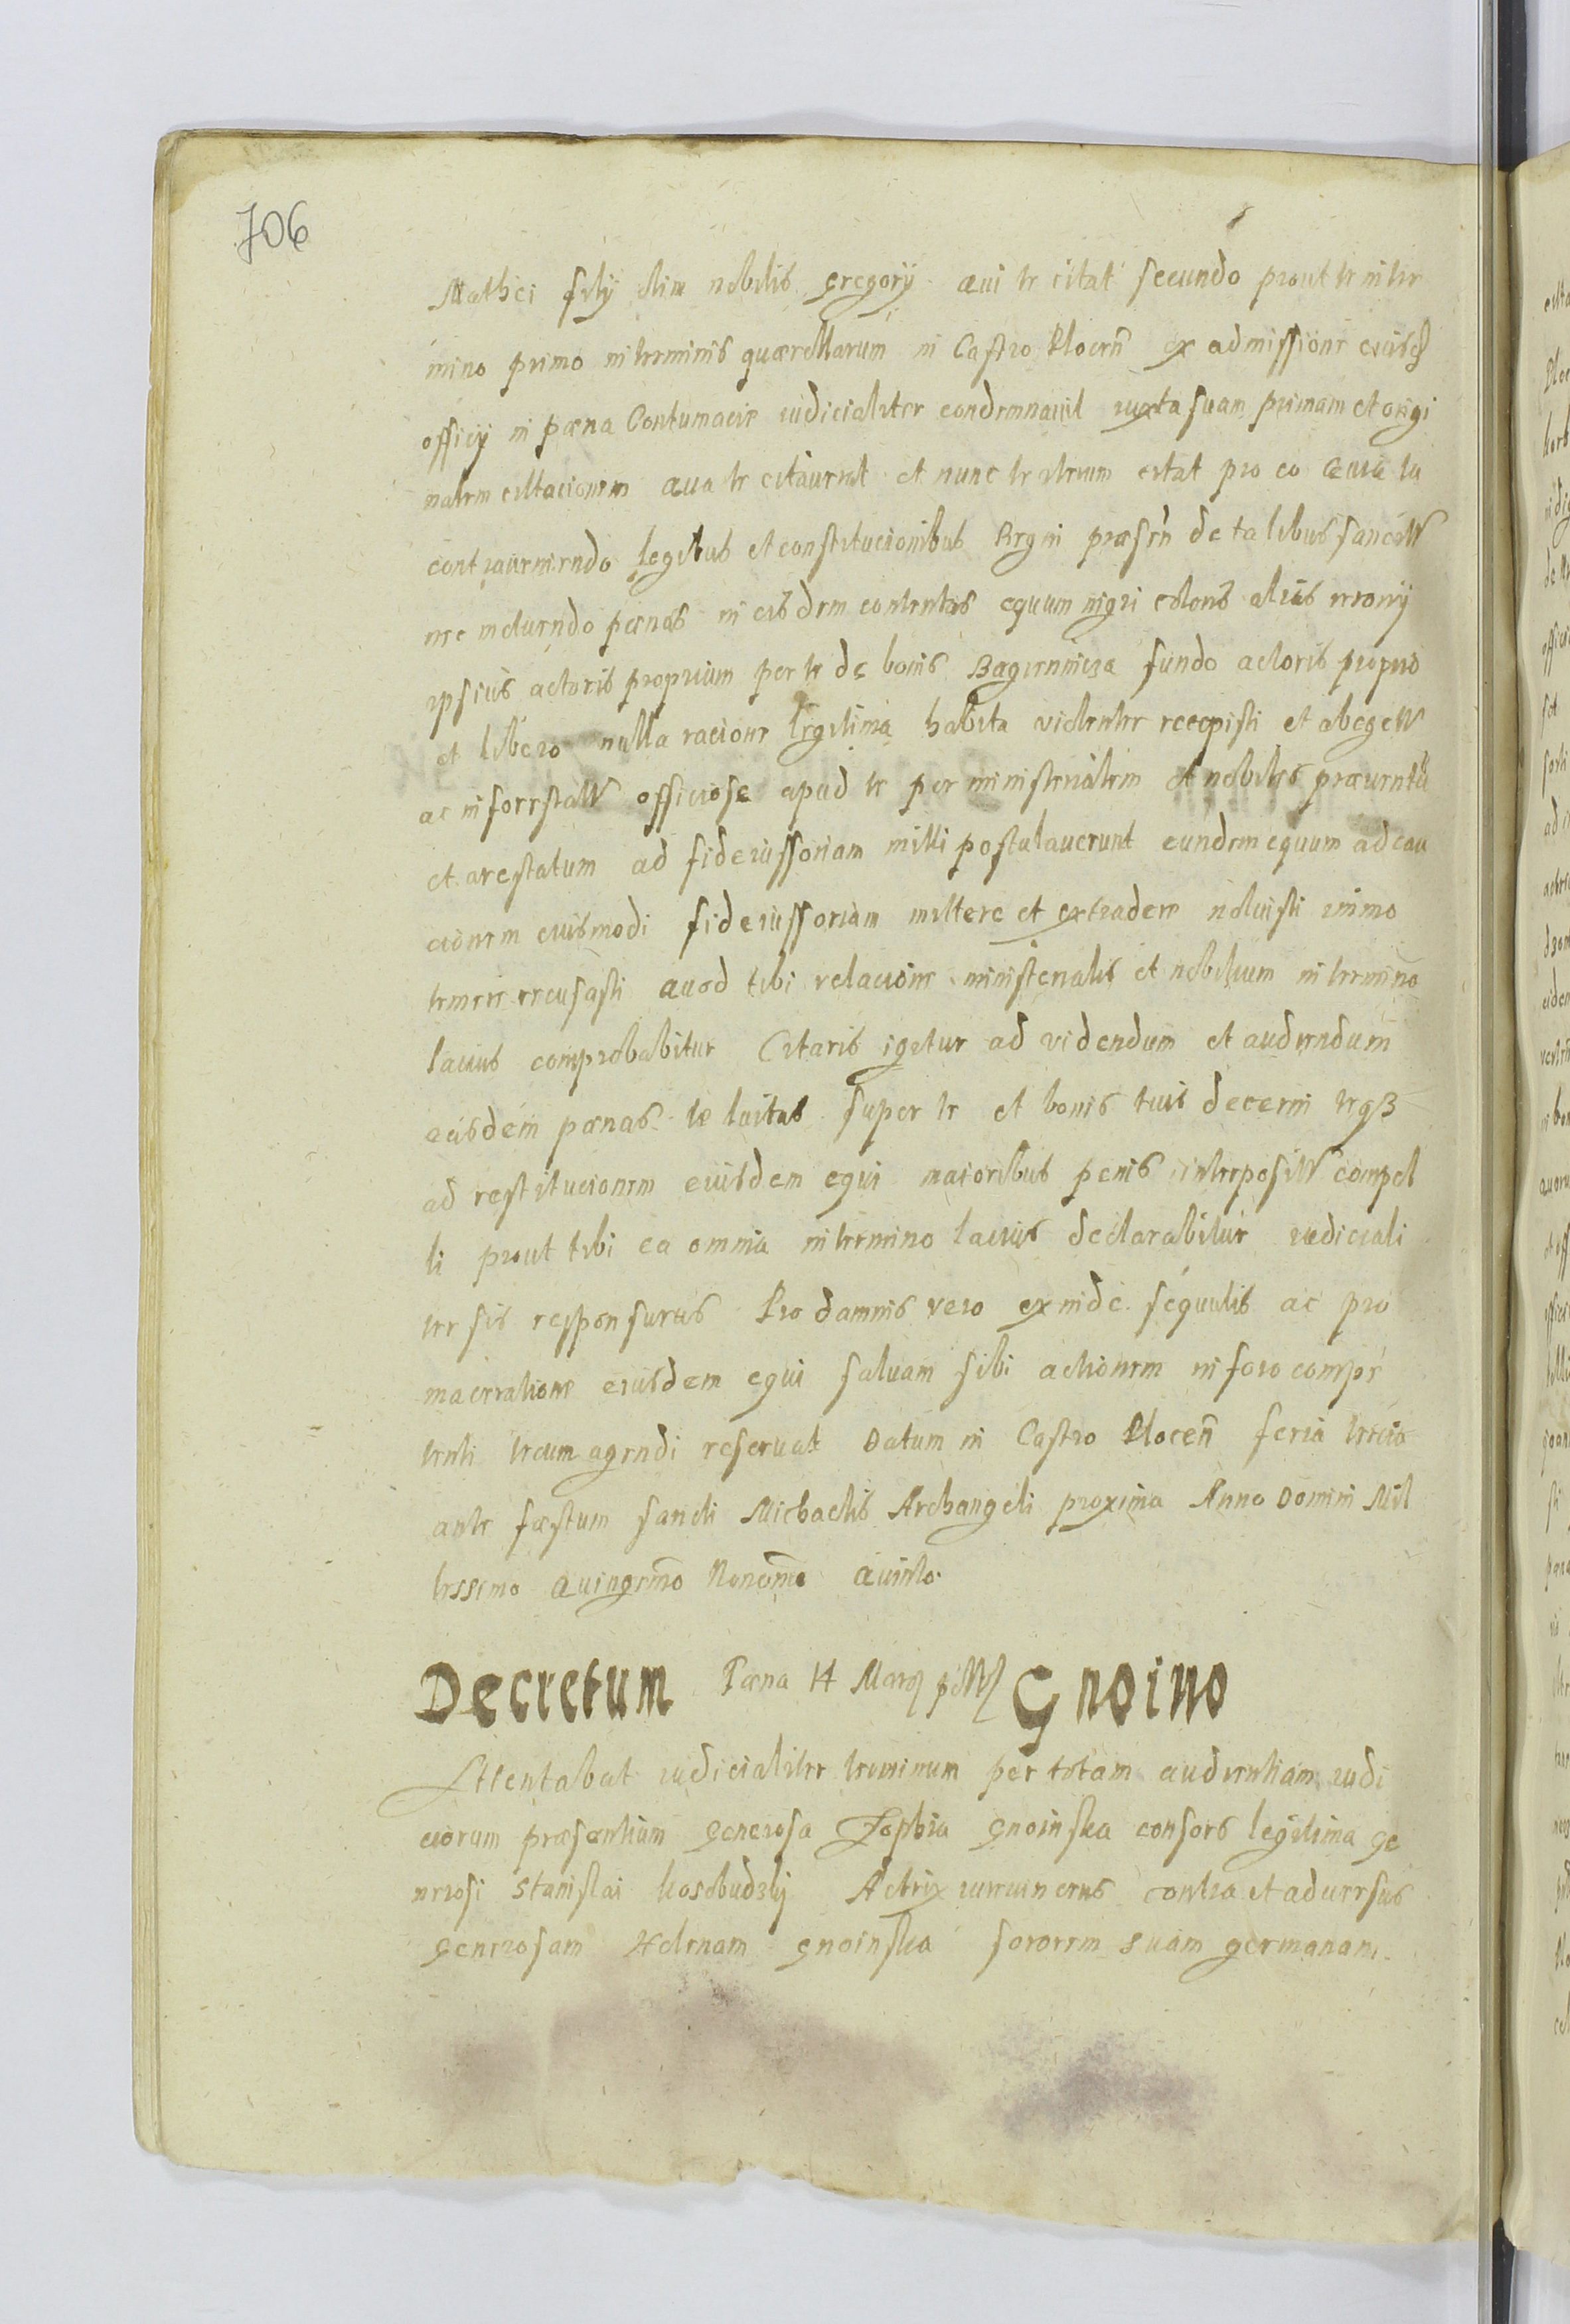 706
Mathei filij olim nobilis Gregorij qui te citat secundo prout te in ter
mino primo in terminis quaerellarum in Castro Plocen̄ ex admissione eiusdē
officij in paena Contumaciae iudicialiter condemnauit iuxta suam primam et origi
nalem cittacionem qua te citauerat et nunc te iterum citat pro eo Quia tu
contraueniendo legibus et constitucionibus Regni praesen̄ de talibus
nec metuendo paenas in eisdem contentas equum nigri coloris alias wrony
ipsius actoris proprium per te de bonis fundo actoris proprio
et libero nulla racione legitima habita violenter recepisti et
ac officiose apud te per ministerialem et nobiles praeuentū
et arestatum ad fideiussoriam mitti postulauerunt eundem equum ad cau
cionem eiusmodi fideiussoriam mittere et extradere noluisti immo
temere recusasti quod tibi relacione ministerialis et nobilium in termino
lacius comprobabitur Citaris igitur ad videndum et audiendum
easdem paenas super te et bonis tuis decerni teqȝ
ad restitucionem eiusdem equi maioribus penis compel
li prout tibi ea omnia in termino lacius declarabitur iudiciali
ter sis responsurus Pro damnis vero exinde sequutis ac pro
maceratione eiusdem equi saluam sibi actionem in foro compe
tenti tecum agendi reseruat Datum in Castro Plocen̄ feria tercia
ante faestum sancti Michaelis Archangeli proxima Anno Domini Mil
lessimo Quingēmo Nonāmo Quinto.
Decretum Paena 14 Gnoino
Attentabat iudicialiter terminum per totam audientiam iudi
ciorum praesentium Generosa Zophia Gnoinska consors legitima Ge
nerosi Stanislai Kosobudzkij Actrix contra et aduersus
Generosam Helenam Gnoinska sororem suam germanam